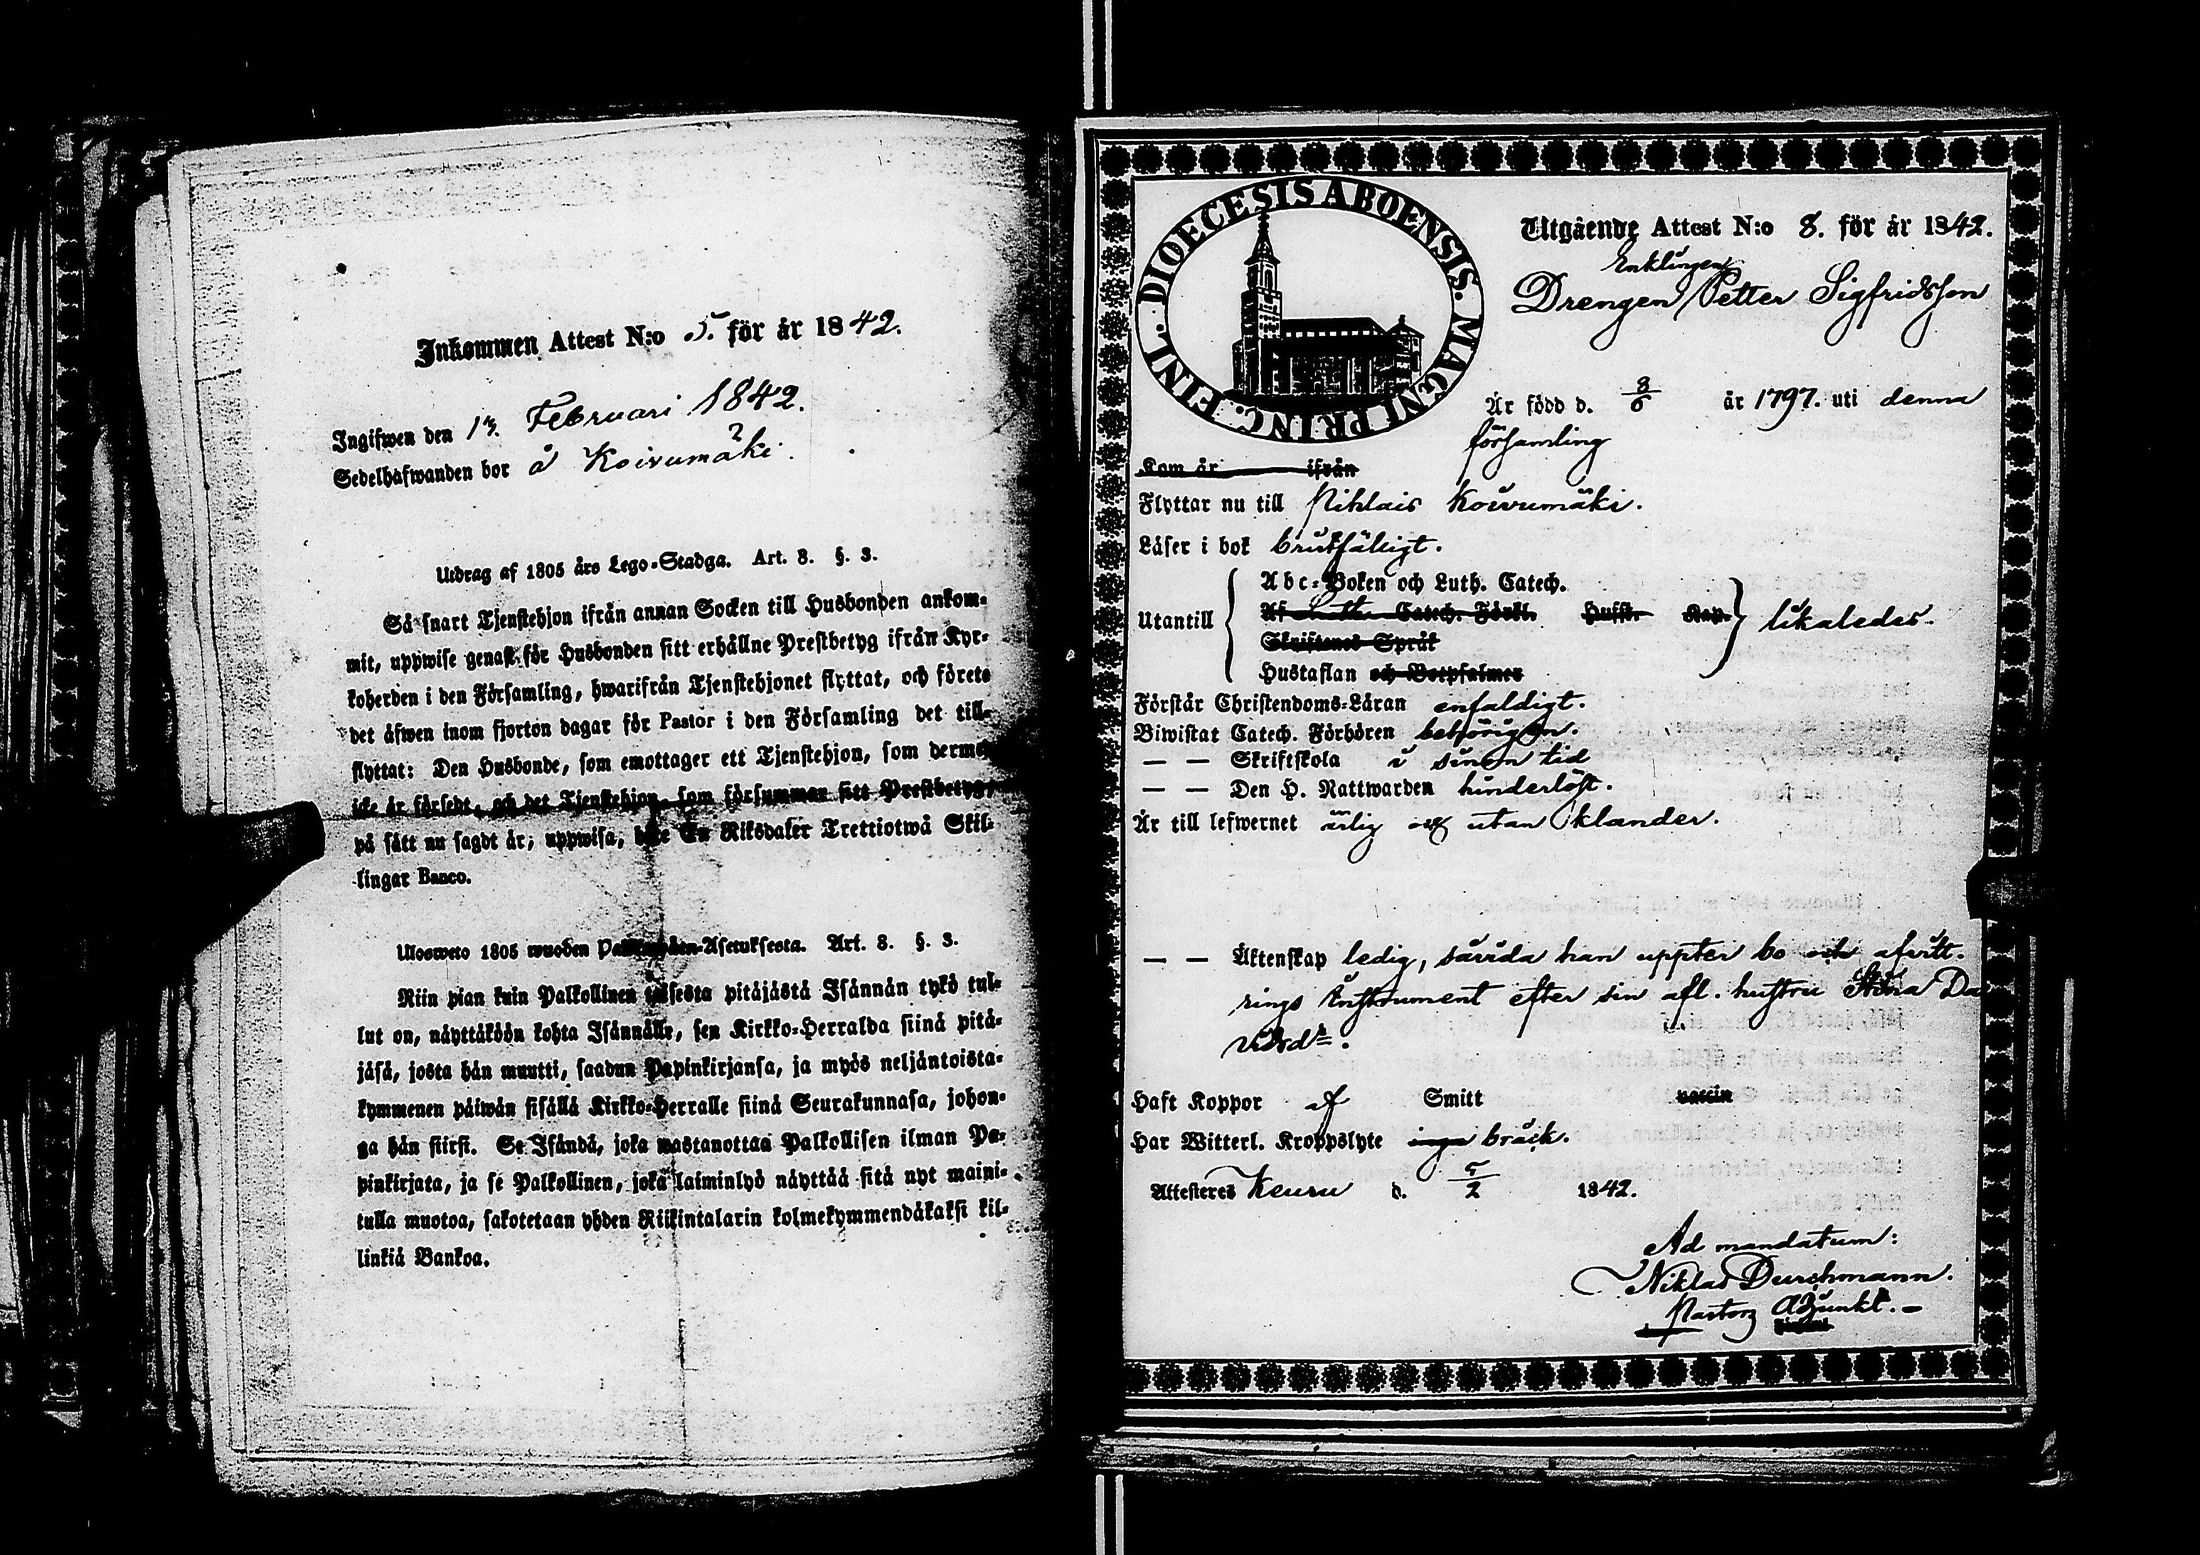 Inkommen Attest N:o 5. för år 1842.
Ingifwen den 13. Februari 1842.
Sedelhafwanden bor å Koivumäki ?
Utdrag af 1805 års Lego-Stadga. Art. 8. §. 3.
Så snart Tjenstehjon ifrån annan Socken till Husbonden ankom-
mit, uppwise genast för Husbonden sitt erhållne Prestbetyg ifrån Kyr-
koherden i den Församling, hwarifrån Tjenstehjonet flyttat, och förete
det äfwen inom fjorton dagar för Pastor i den Församling det till-
flyttat: Den Husbonde, som emottager ett Tjenstehjon, som dermed
icke är försedt, och det Tjenstehjon, som försummar sitt Prestbetyg,
på sätt nu sagdt är, uppwisa, böte En Riksdaler Trettiotwå Skil-
lingar Banco.
Ulosweto 1805 wuoden Palkollisten-Asetuksesta. Art. 8. §. 3.
Niin pian kuin Palkollinen toisesta pitäjästä Isännän tykö tul-
lut on, näyttäköön kohta Isännälle, sen Kirkko-Herralda siinä pitä-
jäsä, josta hän muutti, saadun Papinkirjansa, ja myös neljäntoista-
kymmenen päiwän sisällä Kirkko-Herralle siinä Seurakunnasa, johon-
ga hän siirsi. Se Isändä, joka wastanottaa Palkollisen ilman Pa-
pinkirjata, ja se Palkollinen, joka laiminlyö näyttää sitä nyt maini-
tulla muotoa, sakotetaan yhden Riikintalarin kolmekymmendäkaksi kil-
linkiä Bankoa.
DIOECESIS ABOENSIS. MAGNI PRINC. FINL.
Utgående Attest N:o 8. för år 1842.
Enklingen
Drengen Petter Sigfridsson
Är född d. 8/6 år 1797. uti denna
församling
Kom år ifrån
Flyttar nu till Pihlais Koivumäki.
Läser i bok bristfälligt.
Abc-Boken och Luth. Catech.
Utantill Af Catech. Förkl. Hufst. Kap. likaledes.
Skriftenes Språk
Hustaflan och Botpsalmer
Förstår Christendoms-Läran enfaldigt.
Biwistat Catech. Förhören behörigen.
— — Skriftskola i sinom tid
— — Den H. Nattwarden hinderlöst.
Är till lefwernet ärlig och utan klander.
— — Äktenskap ledig, särida han uppter bo och afvitt.
rings Instrument efter sin afl. hustru Stina Da
vidsdr.
Haft Koppor af Smitt vaccin
Har Witterl. Kroppslyte inga bråck.
Attesteres Keuru d. 5/2 1842.
Ad mandatum:
Niklas Durchmann.
Pastors Adjunkt.